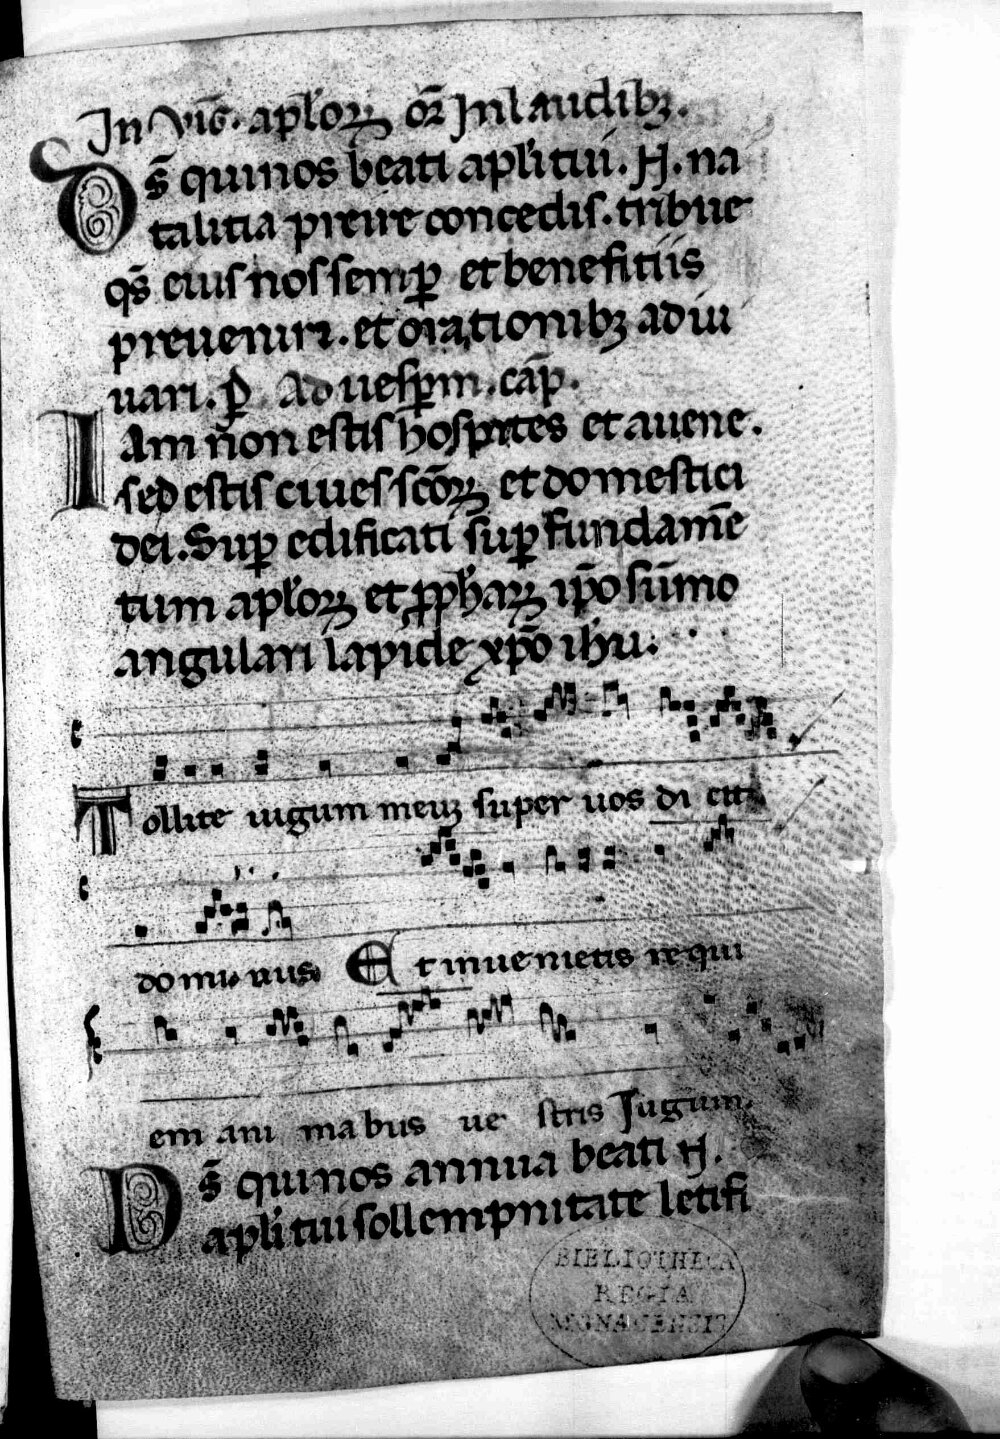 In vig. apl'oꝝ or̄ In laudibꝫ.
Ds̄ qui nos beati apl'i tui. N̄. na
talitia preire concedis. tribue
qs̄ eius nos semꝑ et benefitiis
preueniri. et orationibꝫ adiu
uari. ꝑ Ad uesꝑm. cap̄.
Iam non estis hospites et auene.
sed estis ciues sc̄oꝝ et domestici
dei. Suꝑ edificati suꝑ fundam̄e
tum apl'oꝝ et ꝓph'aꝝ ip̄o sūmo
angulari lapide xp̄o ih'u.
Tollite iugum meuꝫ super uos di cit
do mi nus Et inuenietis requi
em ani mabus ue stris Iugum.
Ds̄ qui nos annua beati N̄.
apl'i tui sollempnitate letifi
BIBLIOTHECA
REGIA
MONACENSIS